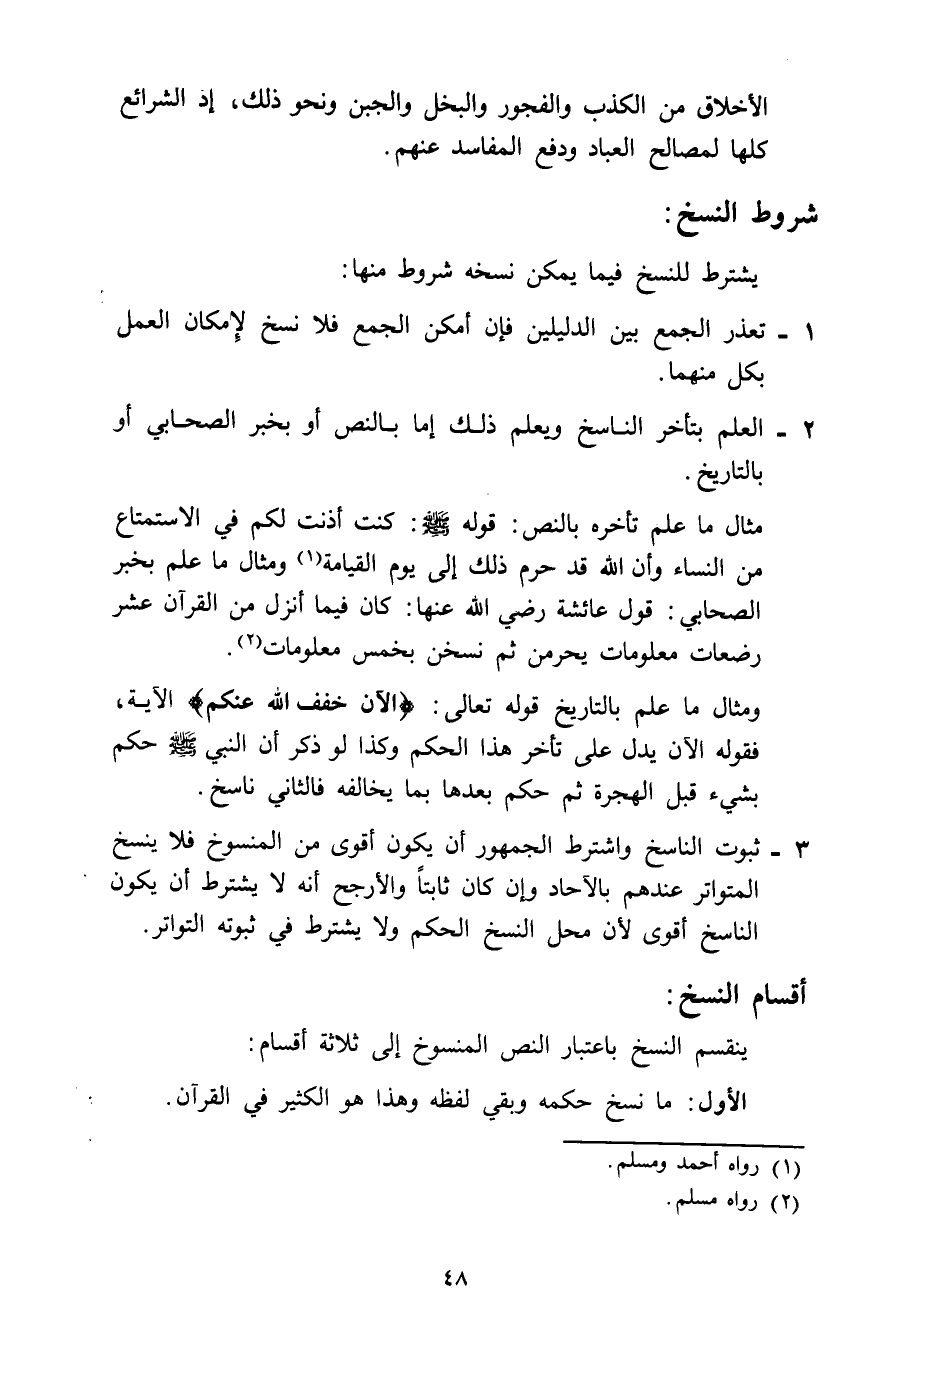 الأخلاق من الكذب والفجور والبخل والجبن ونحو ذلك، إذ الشرائع
كلها لمصالح العباد ودفع المفاسد عنهم.
شروط النسخ:
يشترط للنسخ فيما يمكن نسخه شروط منها:
١ ـ تعذر الجمع بين الدليلين فإن أمكن الجمع فلا نسخ لإمكان العمل
بكل منهما.
٢ ـ العلم بتأخر الناسخ ويعلم ذلك إما بالنص أو بخبر الصحابي أو
بالتاريخ.
مثال ما علم تأخره بالنص: قوله ﷺ: كنت أذنت لكم في الاستمتاع
من النساء وأن الله قد حرم ذلك إلى يوم القيامة(١) ومثال ما علم بخبر
الصحابي: قول عائشة رضي الله عنها: كان فيما أنزل من القرآن عشر
رضعات معلومات يحرمن ثم نسخن بخمس معلومات(٢).
ومثال ما علم بالتاريخ قوله تعالى: ﴿الآن خفف الله عنكم﴾ الآية،
فقوله الآن يدل على تأخر هذا الحكم وكذا لو ذكر أن النبي ﷺ حكم
بشيء قبل الهجرة ثم حكم بعدها بما يخالفه فالثاني ناسخ.
٣ ـ ثبوت الناسخ واشترط الجمهور أن يكون أقوى من المنسوخ فلا ينسخ
المتواتر عندهم بالآحاد وإن كان ثابتاً والأرجح أنه لا يشترط أن يكون
الناسخ أقوى لأن محل النسخ الحكم ولا يشترط في ثبوته التواتر.
أقسام النسخ:
ينقسم النسخ باعتبار النص المنسوخ إلى ثلاثة أقسام:
الأول: ما نسخ حكمه وبقي لفظه وهذا هو الكثير في القرآن.
(١) رواه أحمد ومسلم.
(٢) رواه مسلم.
٤٨